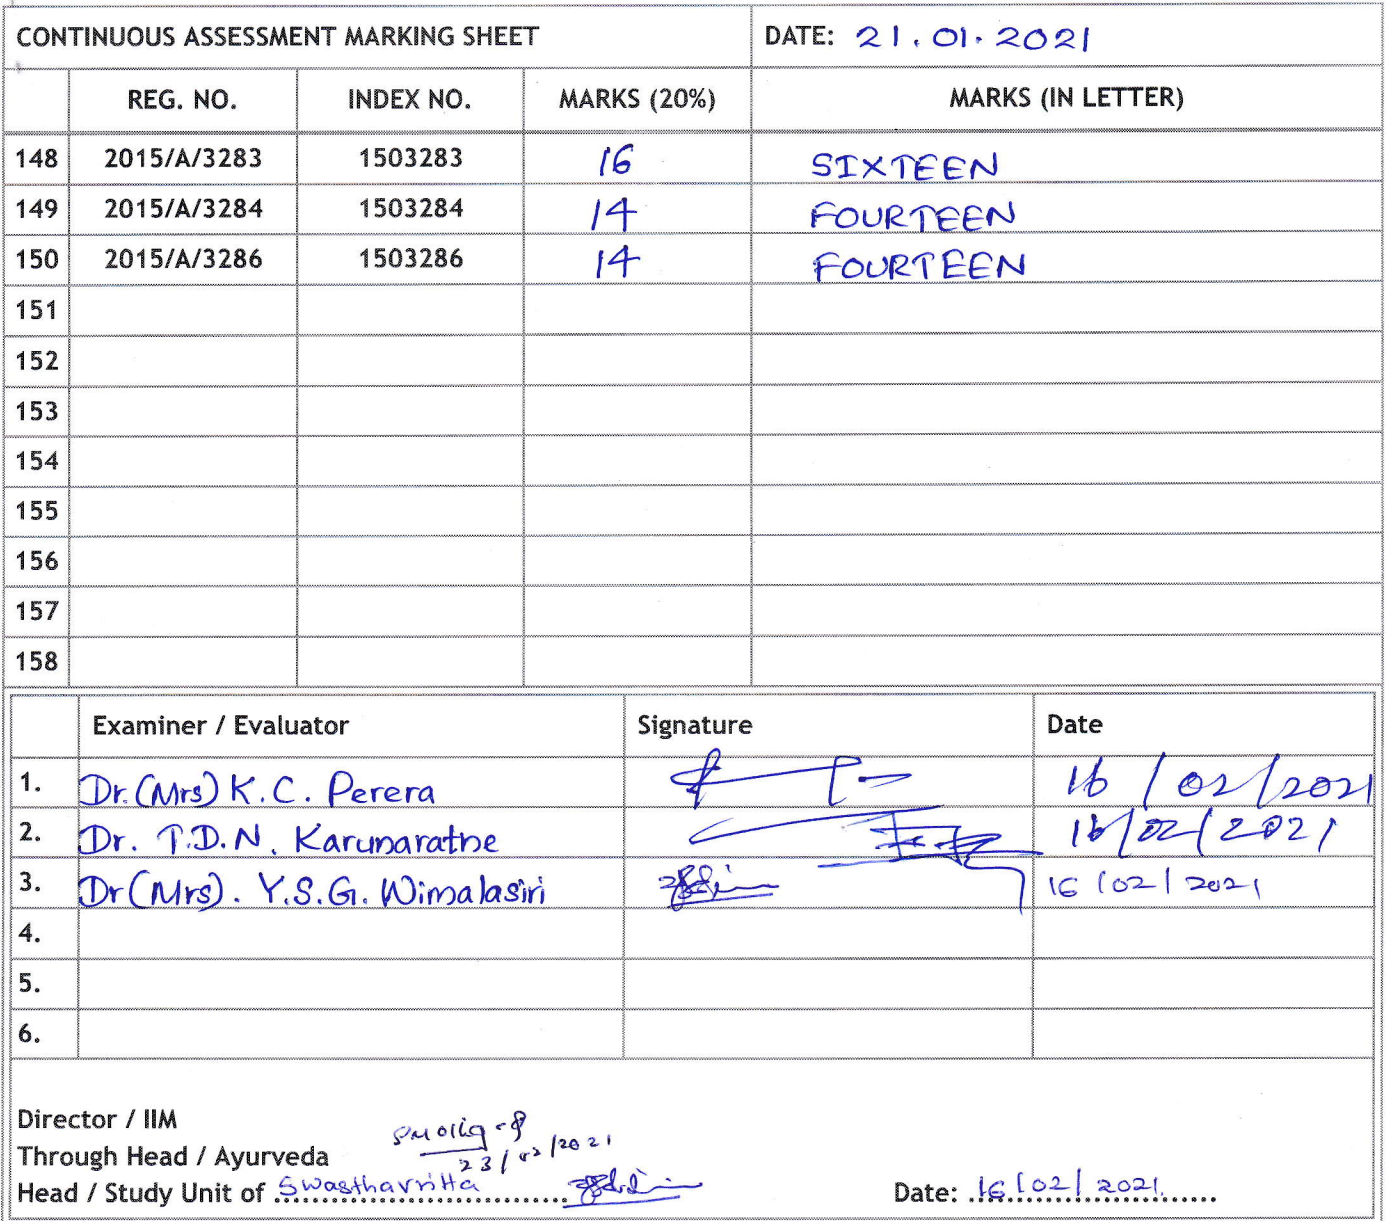 CONTINUOUS ASSESSMENT MARKING SHEET DATE: 21.01.2021
REG. NO. INDEX NO. MARKS (20%) MARKS (IN LETTER)
148 2015/A/3283 1503283 16 SIXTEEN
149 2015/A/3284 1503284 14 FOURTEEN
150 2015/A/3286 1503286 14 FOURTEEN
151
152
153
154
155
156
157
158
Examiner / Evaluator Signature Date
1. Dr.(Mrs) K.C. Perera 16/02/2021
2. Dr. T.D.N. Karunarathe 16/02/2021
3. Dr(Mrs). Y.S.G. Wimalasiri 16/02/2021
4.
5.
6.
Director / IIM
Through Head / Ayurveda 23/02/2021
Head / Study Unit of Swasthavritta Date: 16/02/2021